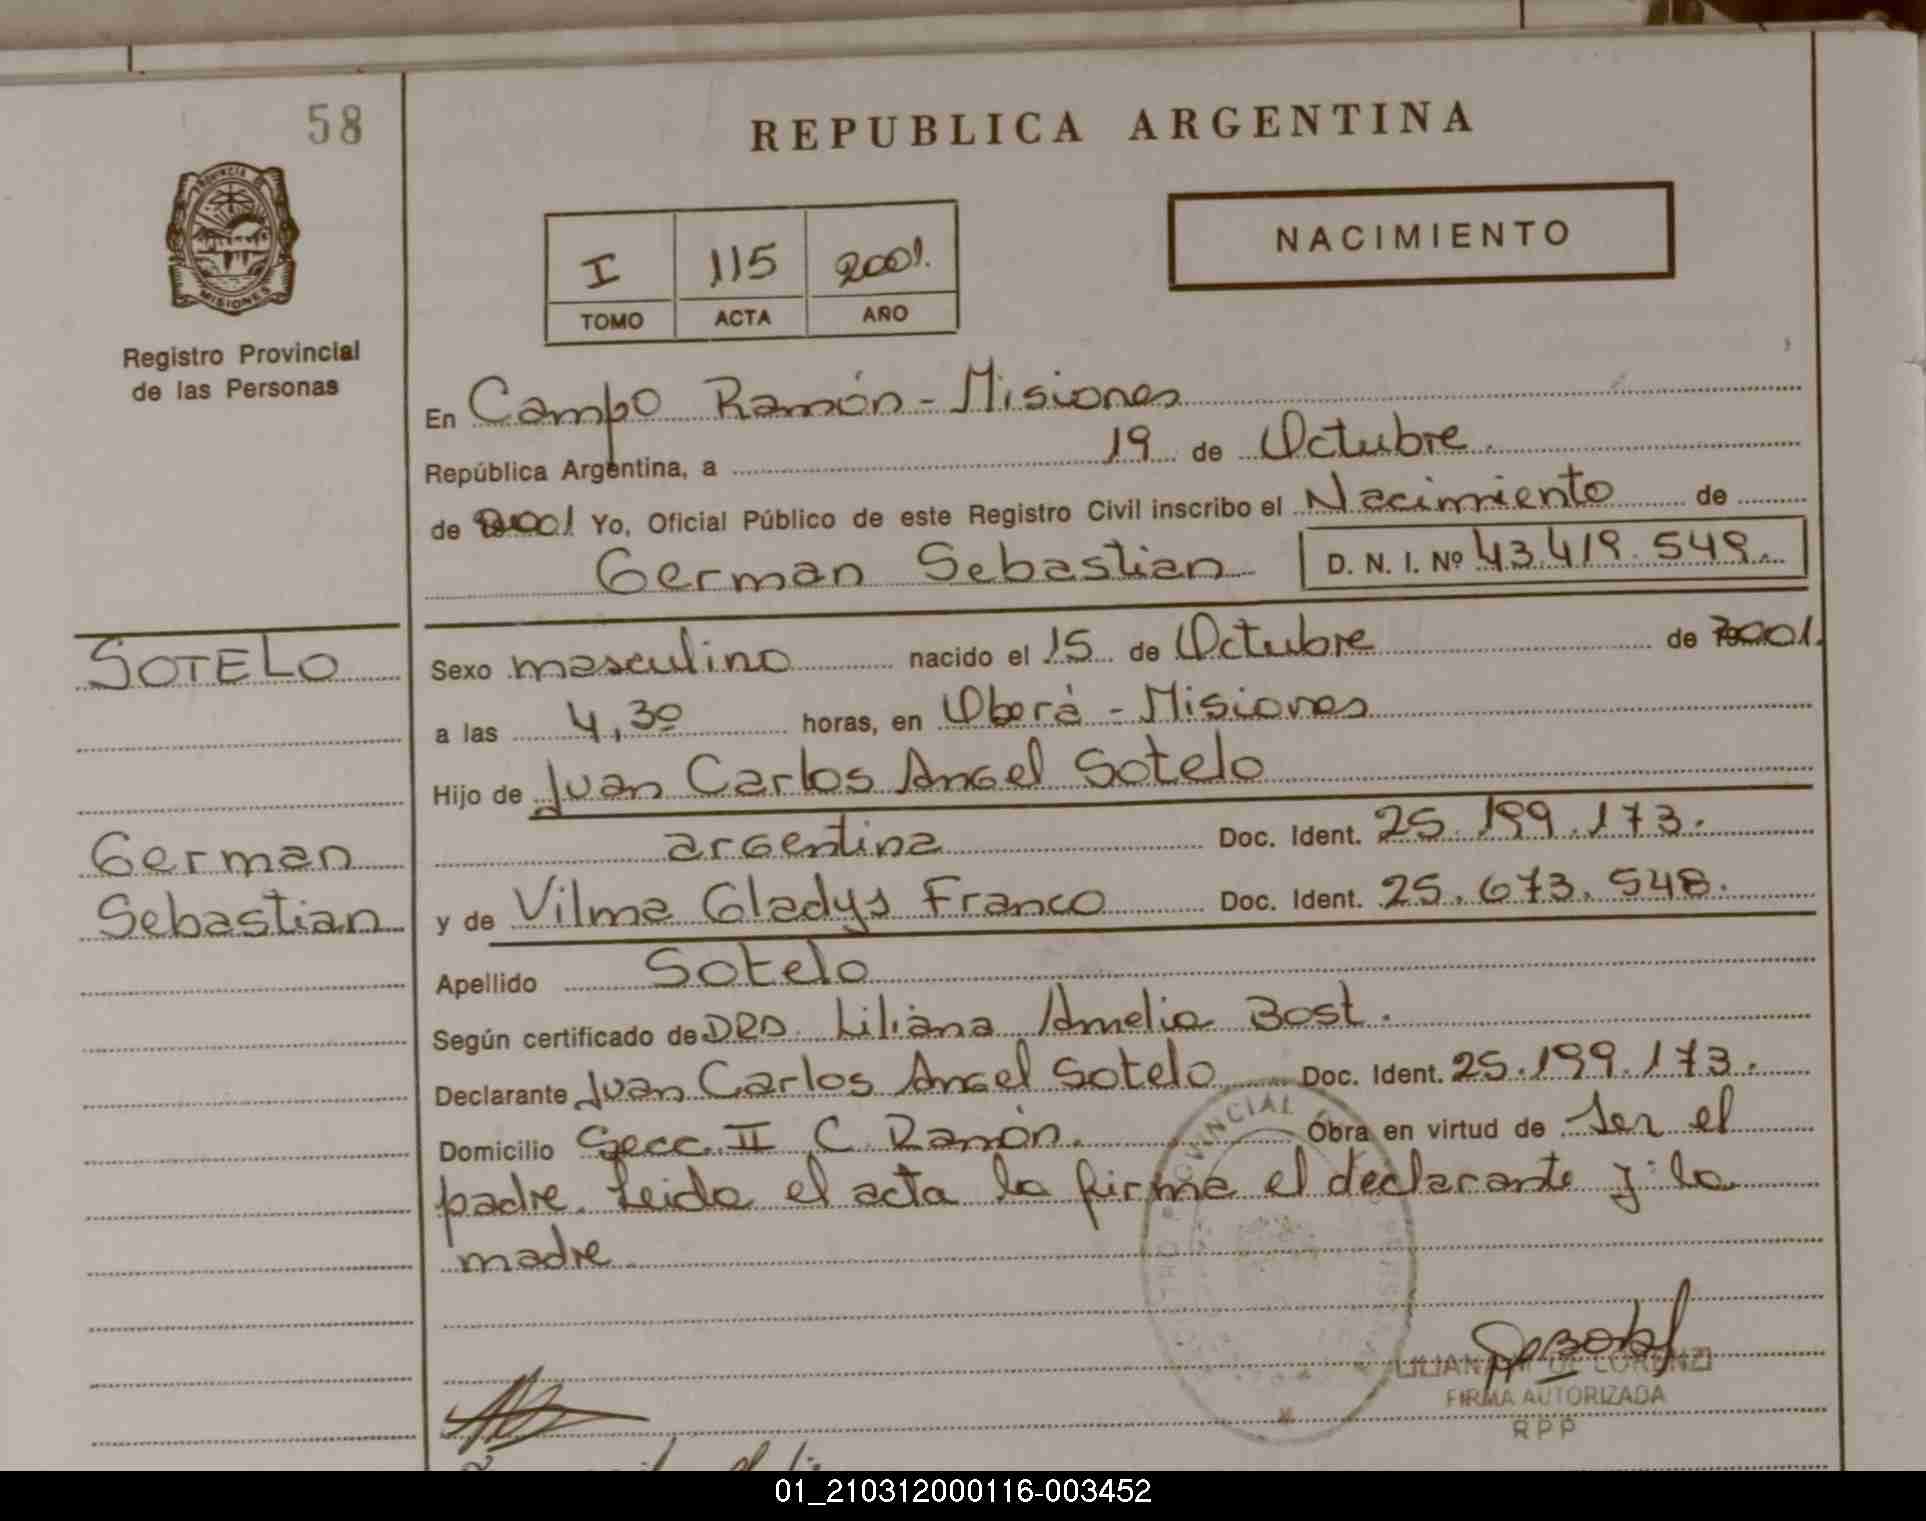 58
REPUBLICA ARGENTINA
PROVINCIA DE
MISIONES
Registro Provincial
de las Personas
I 115 2001.
TOMO ACTA AÑO
NACIMIENTO
En Campo Ramón - Misiones
República Argentina, a 19 de Octubre.
de 2001 Yo, Oficial Público de este Registro Civil inscribo el Nacimiento de
German Sebastian D. N. I. Nº 43.419.549.
SOTELO
Sexo masculino nacido el 15 de Octubre de 2001.
a las 4,30 horas, en Oberá - Misiones
Hijo de Juan Carlos Angel Sotelo
argentina Doc. Ident. 25.199.173.
German
Sebastian
y de Vilma Gladys Franco Doc. Ident. 25.673.548.
Apellido Sotelo
Según certificado de DRA. Liliana Amelia Bost.
Declarante Juan Carlos Angel Sotelo Doc. Ident. 25.199.173.
Domicilio Secc. II C. Ramón. Obra en virtud de Ser el
padre. Leida el acta la firma el declarante y la
madre.
PROVINCIAL
FIRMA AUTORIZADA
RPP
01_210312000116-003452